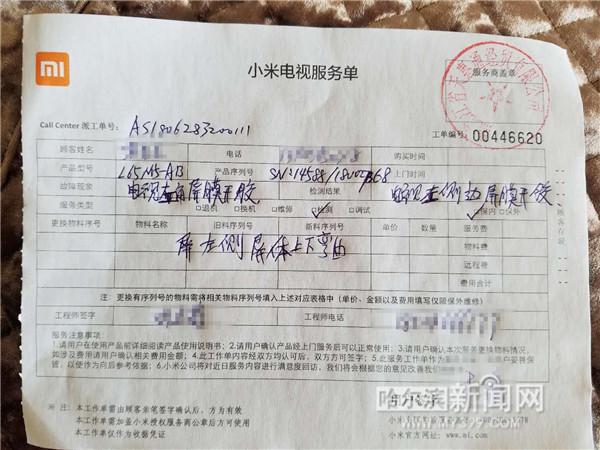 mi
小米电视服务单
服务商盖章
Call Center 派工单号: AS1806283200111
工单编号: 00446620
顾客姓名 电话 购买时间
产品型号 L65M5-AB 产品序列号 上门时间
故障现象 电视左角屏膜开胶 检测结果 电视左侧边屏膜开胶
服务类型 □退机 □换机 □维修 检测 □调试 保内 □保外
更换物料序号 物料名称 旧料序列号 新料序列号 单价 数量 服务费
屏左侧屏体上下弯曲 物料费
远程费
费用合计
注: 更换有序列号的物料需将相关物料序列号填入上述对应表格中 (单价、金额以及费用填写仅限保外维修)
工程师签字 工程师电话
服务注意事项:
1.请用户在使用产品前详细阅读产品使用说明书; 2.请用户确认产品经上门服务后可以正常使用; 3.请用户确认本次服务更换物料情况,
如涉及费用请用户确认相关费用金额; 4.此工作单内容经双方均认可后, 双方方可签字; 5.此服务工作单作为 请用户妥善保
管, 以便作为向后参考依据; 6.小米公司将对近日服务内容进行满意度回访, 我们将会根据您的意见改善我们
※ 注: 本工作单需由顾客亲笔签字确认后, 方为有效
本工作单需加盖小米授权服务商公章后方可使用
本工作单仅作为收据凭证
小米官方网址: www.mi.com
哈尔滨新闻网
www.my399.com